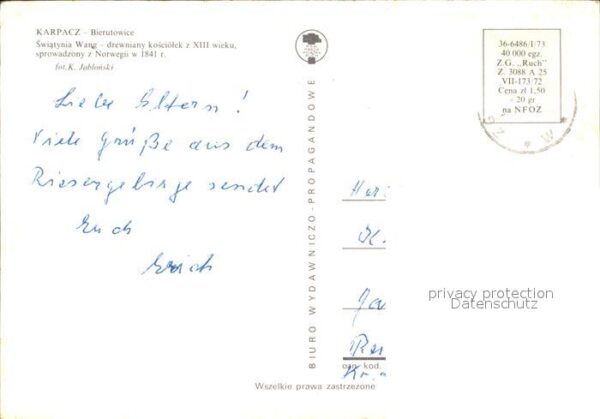 KARPACZ – Bierutowice
Świątynia Wang – drewniany kościółek z XIII wieku,
sprowadzony z Norwegii w 1841 r.
fot. K. Jabłoński
Liebe Eltern!
Viele Grüße aus dem
Riesengebirge sendet
Euch
Erich
BIURO WYDAWNICZO-PROPAGANDOWE
36-6486/I/73
40 000 egz.
Z.G. „Ruch"
Z. 3088 A 25
VII-173/72
Cena zł 1,50
+ 20 gr
na NFOZ
privacy protection
Datenschutz
kod.
Wszelkie prawa zastrzeżone